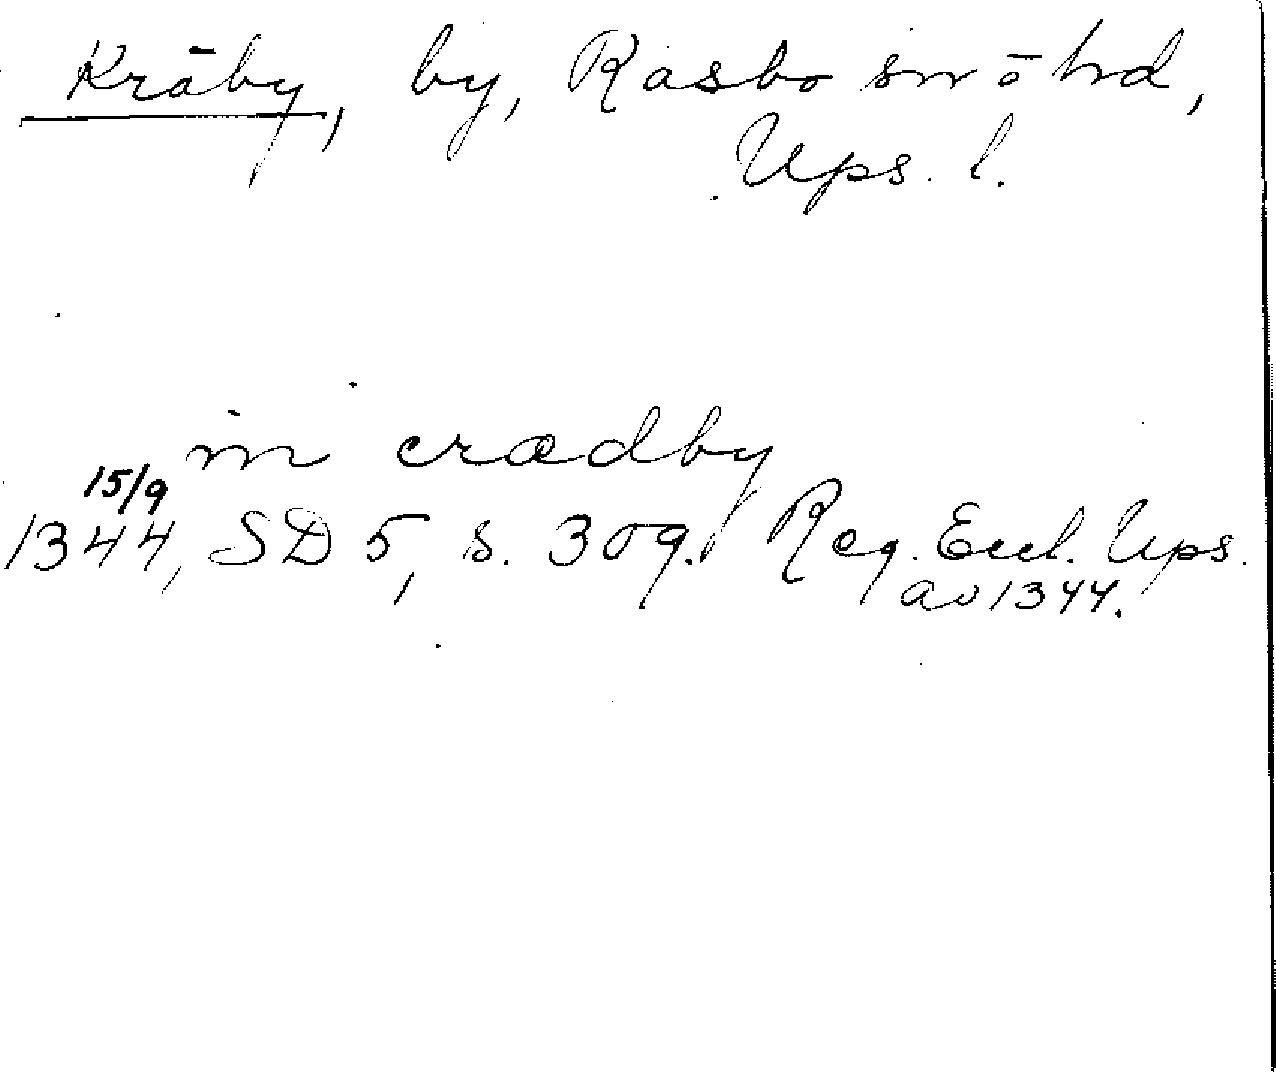 Kräby, by, Rasbo sn o hd,
Ups. l.
in crædby
15/9
1344, SD 5, s. 309. Reg. Eccl. Ups.
av 1344.